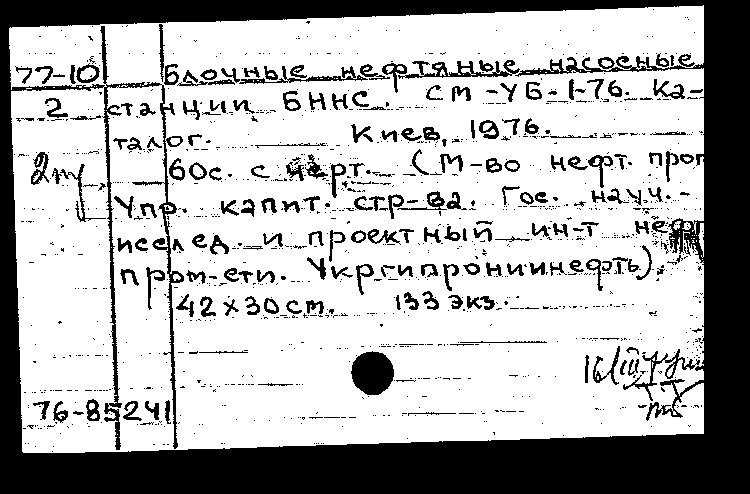 77-10 Блочные нефтяные насосные
2 станции БННС. СМ-УБ-1-76. Ка-
талог. Киев, 1976.
2т 60с. с черт. (М-во нефт. пром
Упр. капит. стр-ва. Гос. науч.-
исслед. и проектный ин-т нефт
пром-сти. Укргипрониинефть).
42х30см. 133 экз.
16
76-85241